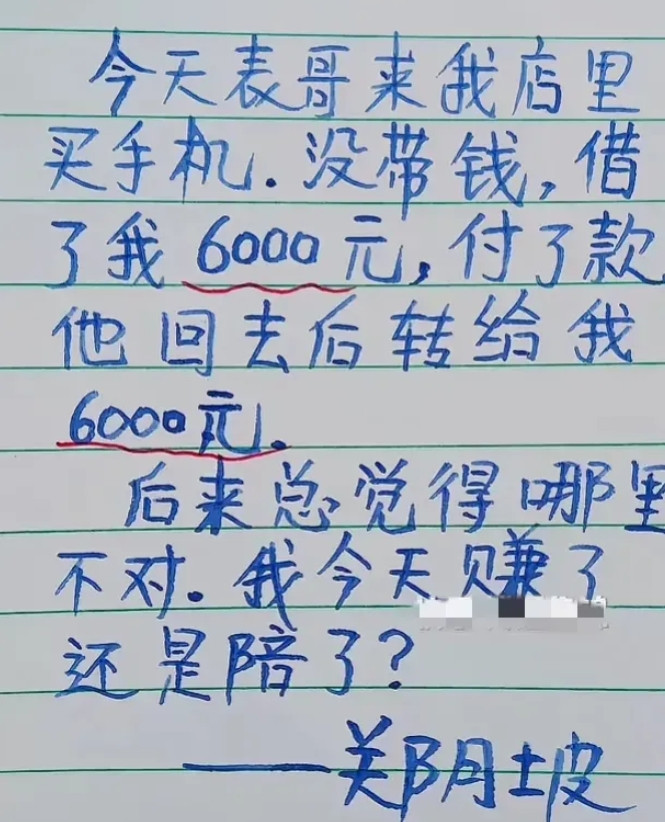 今天表哥来我店里
买手机.没带钱,借
了我6000元,付了款
他回去后转给我
6000元.
后来总觉得哪里
不对.我今天赚了
还是陪了?
——郑月坡